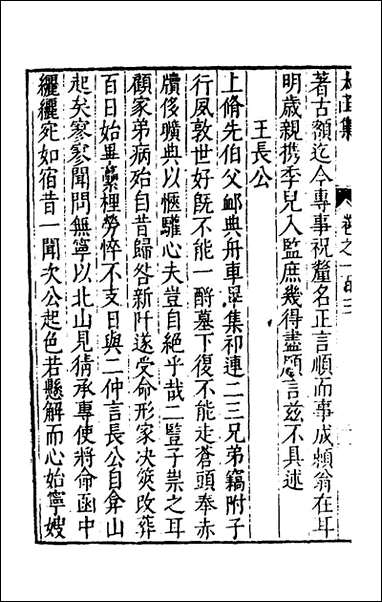 太函集
卷之一百三
著古額迄今專事祝釐名正言順而事成賴翁在耳
明歲親携季兒入監庶幾得盡願言兹不具述
王長公
上脩先伯父䘏典舟車畢集祁連二三兄弟竊附子
行夙敦世好既不能一酹墓下復不能走蒼頭奉赤
牘侈曠典以愜驩心夫豈自絶乎哉二豎子祟之耳
顧家弟病殆自昔歸咎新阡遂受命形家决筴改葬
百日始畢虆梩勞悴不支日與二仲言長公自弇山
起矣寥寥聞問無寧以北山見猜承專使將命函中
纚纚宛如宿昔一聞次公起色若懸解而心始寧嫂